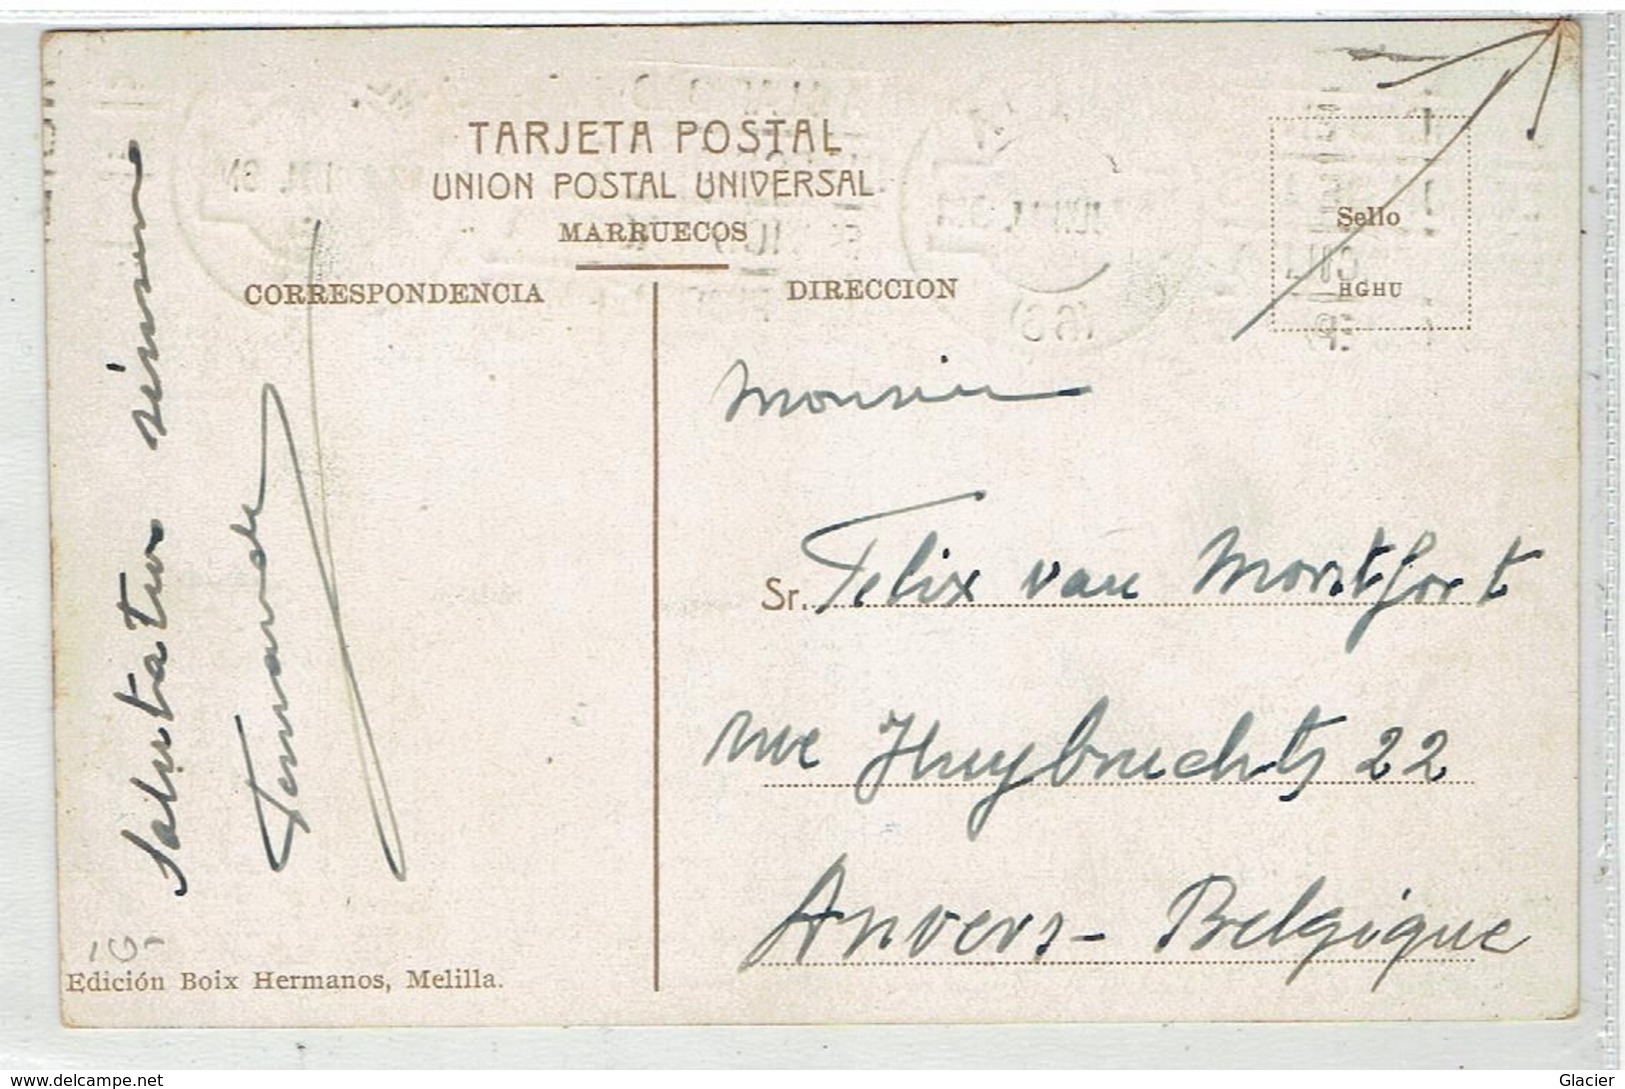 TARJETA POSTAL
UNION POSTAL UNIVERSAL
MARRUECOS
CORRESPONDENCIA
DIRECCION
Sello
HGHU
Monsieur
Sr. Felix van Montfort
rue Huybrechts 22
Anvers - Belgique
Salutation
10-
Edición Boix Hermanos, Melilla.
www.delcampe.net
Glacier